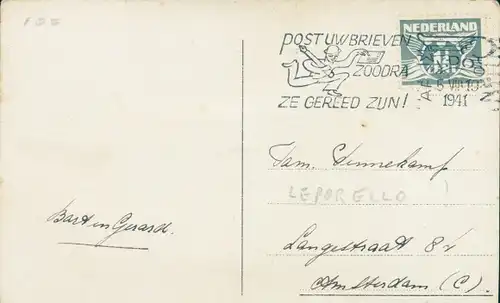 POST UW BRIEVEN
ZOODRA
ZE GEREED ZIJN!
NEDERLAND
1941
Fam. Dennekamp
LEPORELLO
Langestraat 82
Amsterdam (C).
Bart en Gerard.